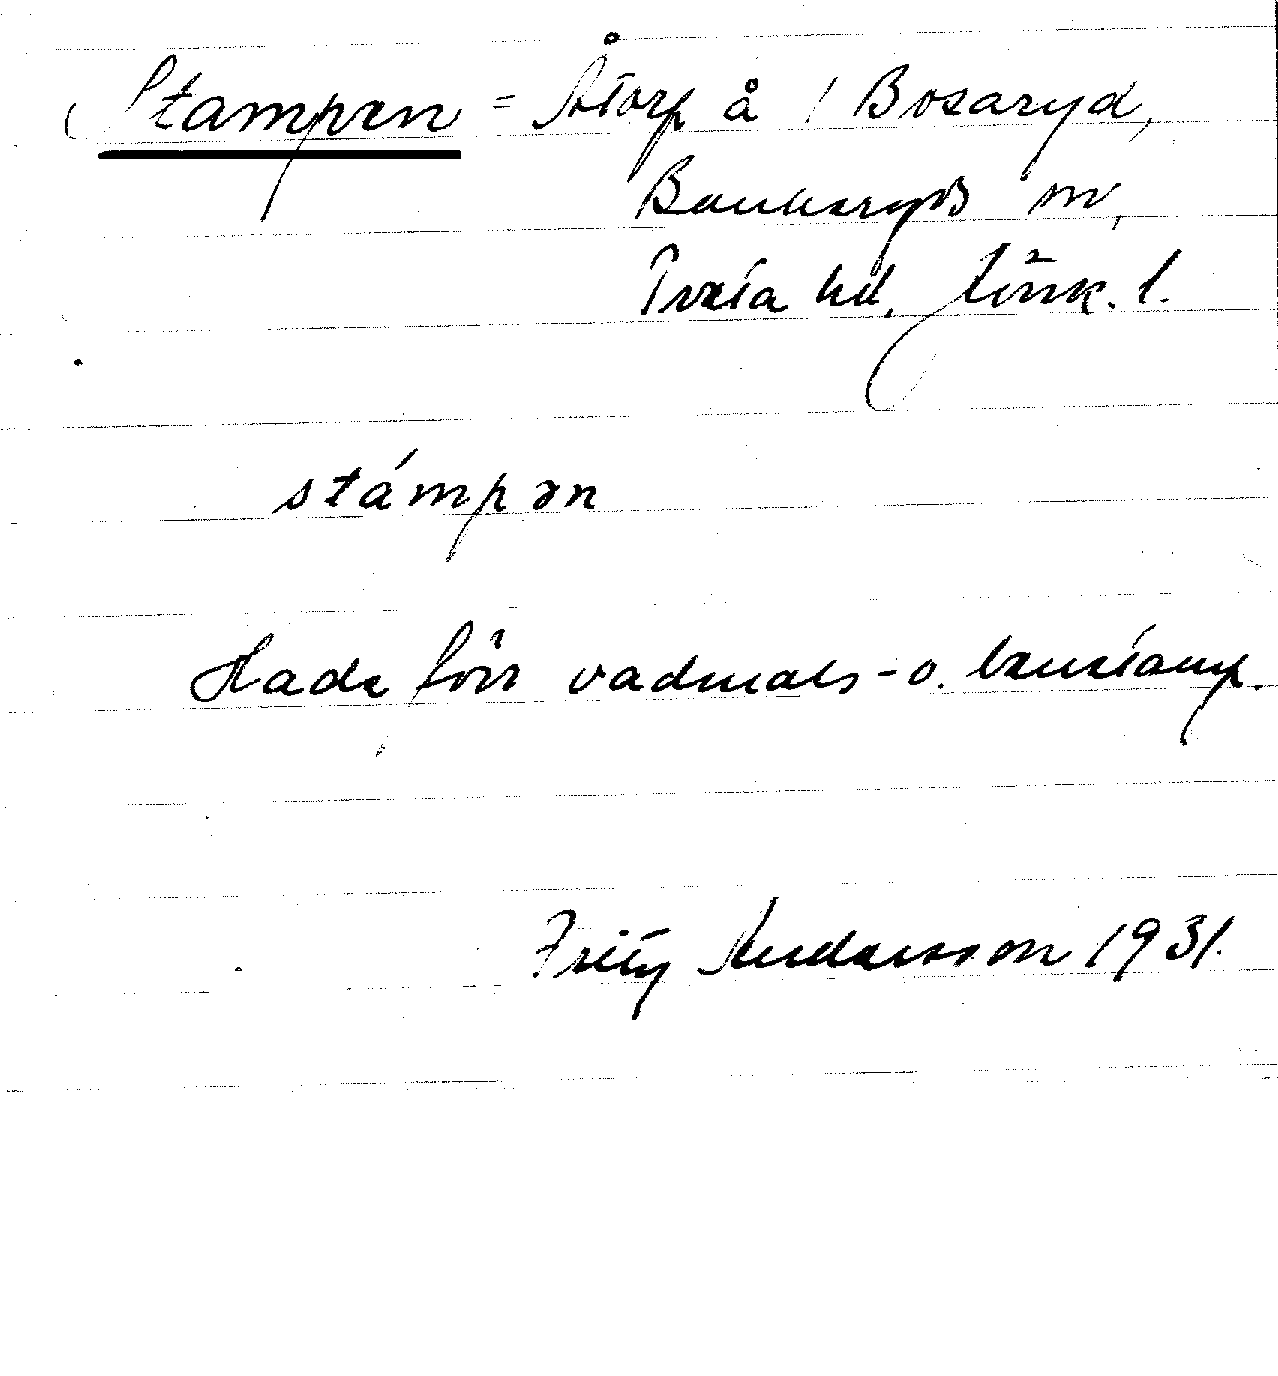 Stampen = Åtorp å 1 Bosaryd,
Bankeryds sn,
Tveta hd, Jönk. l.
stámpən
Hade förr vadmals- o. benstamp.
Fritz Andersson 1931.